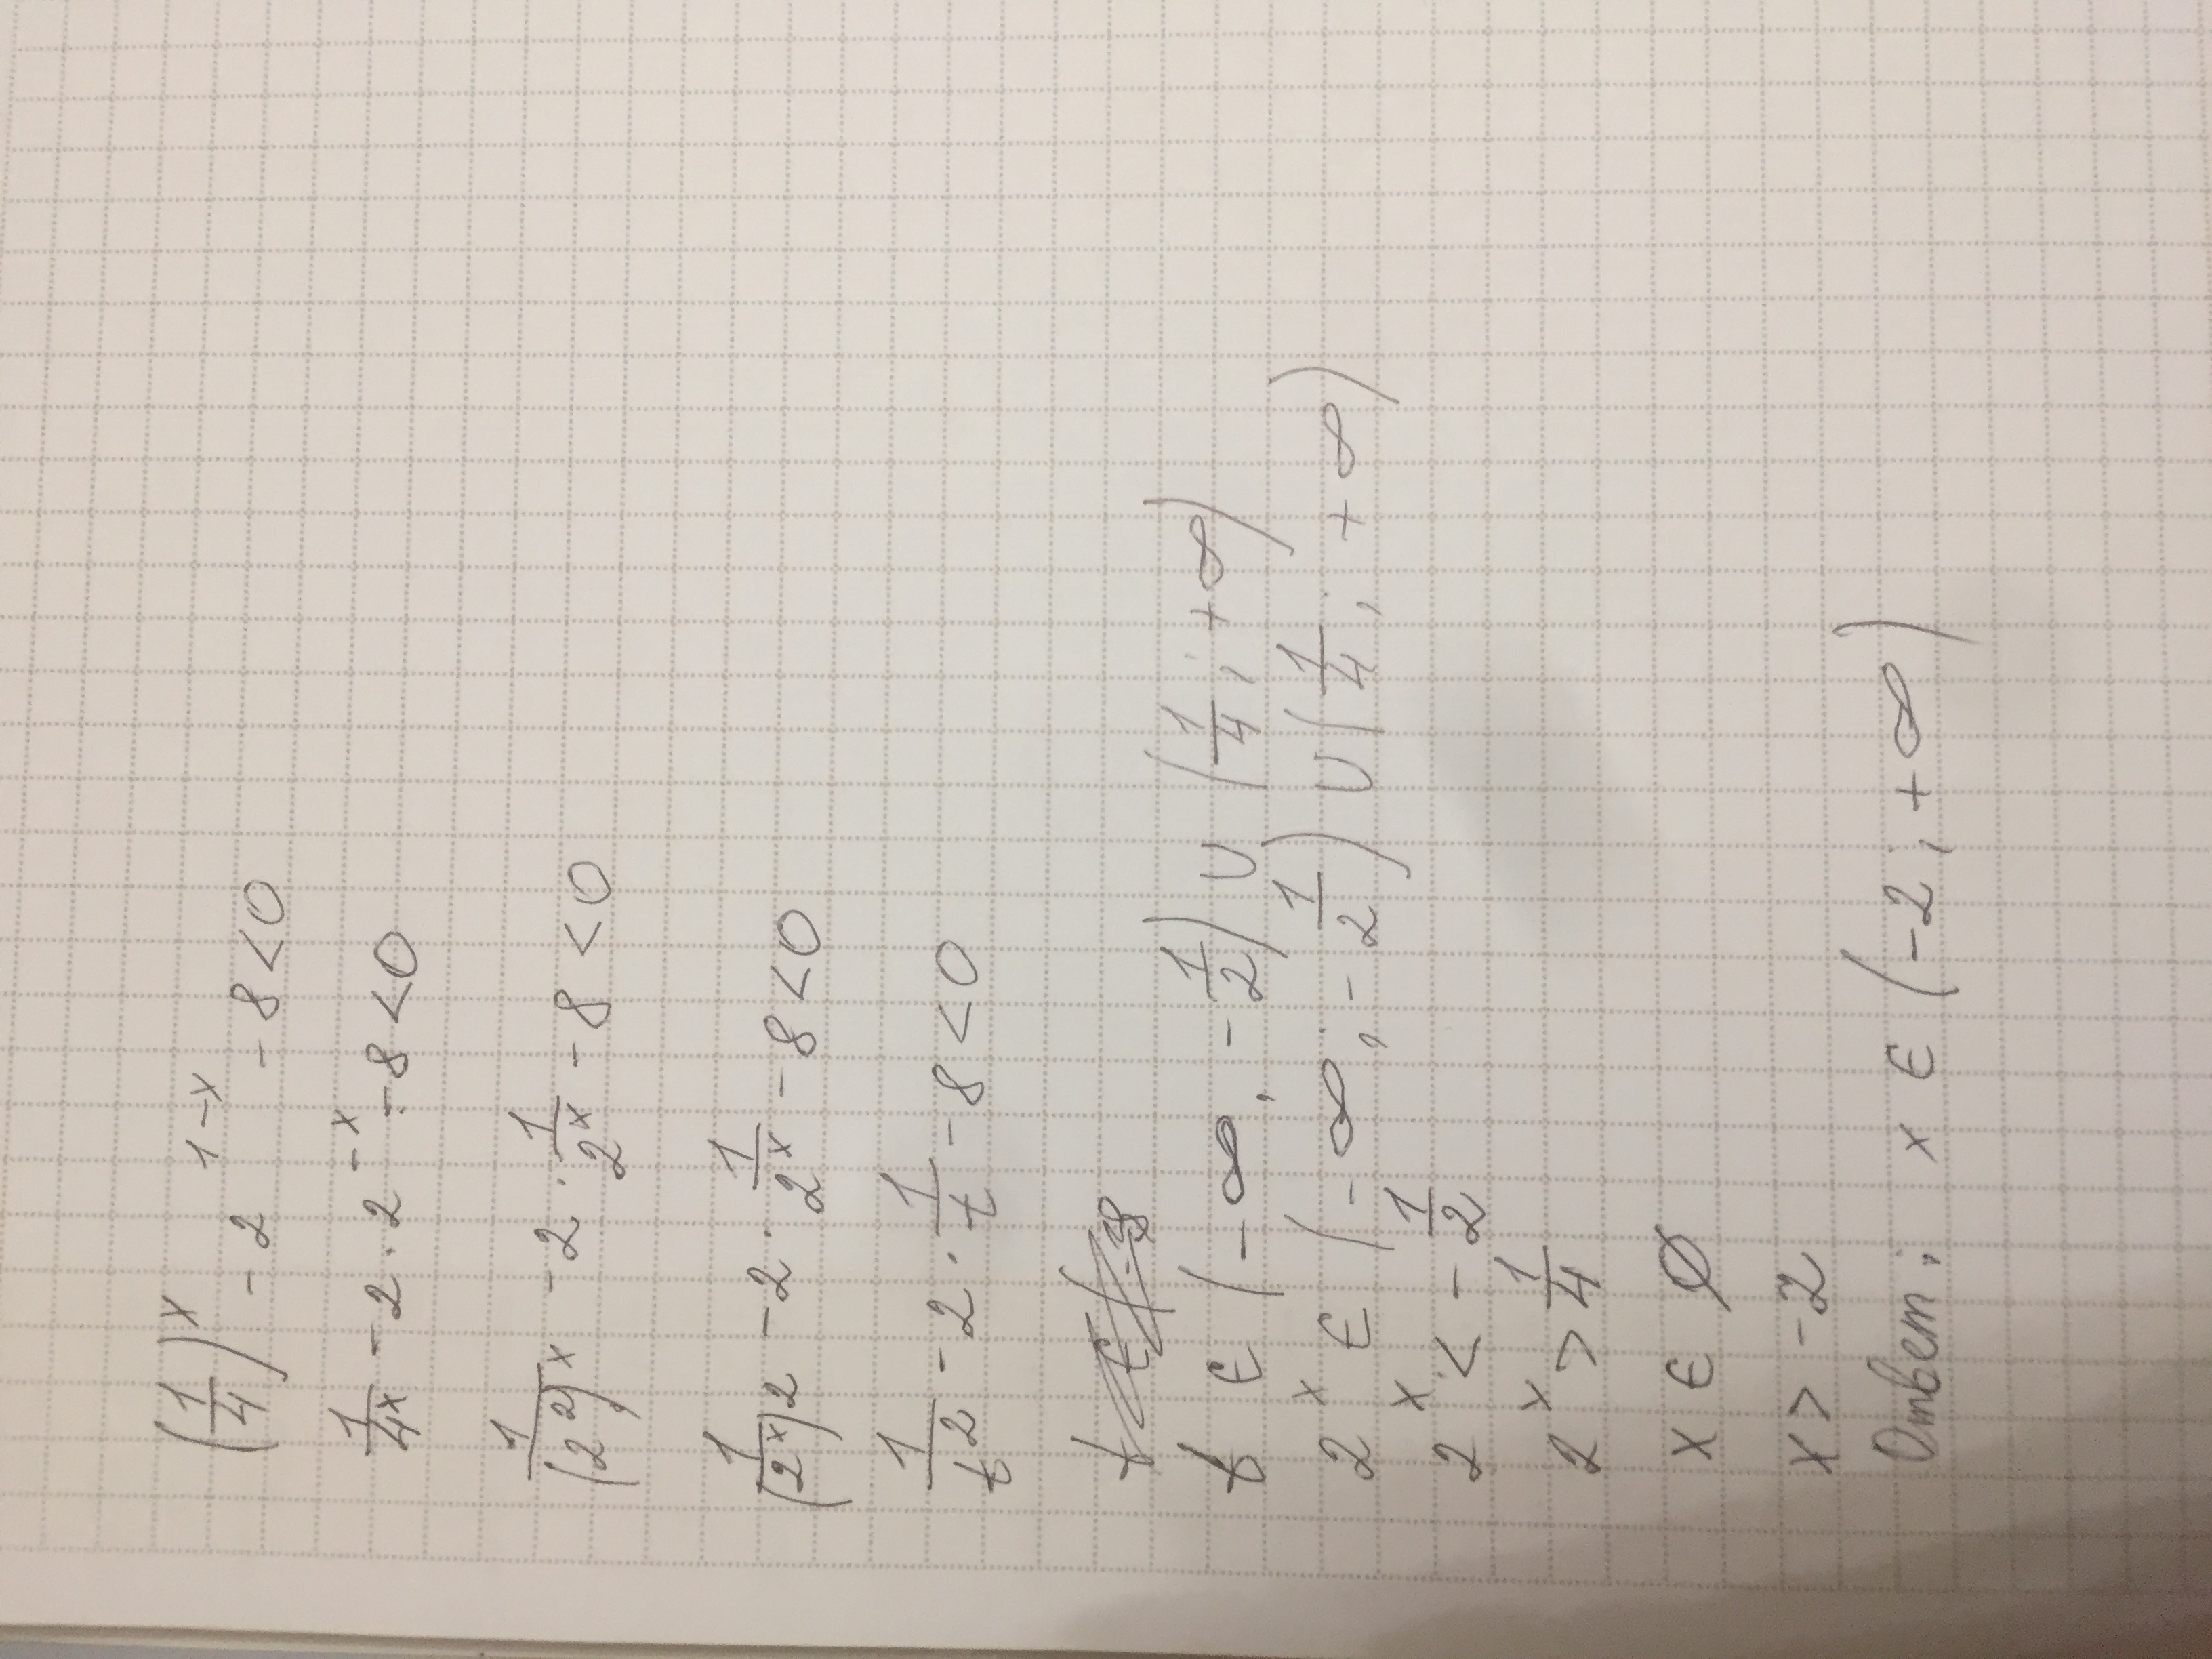 (1/4)^x - 2^(1-x) - 8 < 0
1/4^x - 2 · 2^(-x) - 8 < 0
1/(2^2)^x - 2 · 1/2^x - 8 < 0
1/(2^x)^2 - 2 · 1/2^x - 8 < 0
1/t^2 - 2 · 1/t - 8 < 0
t ∈ (-∞; -1/2) ∪ (1/4; +∞)
2^x ∈ (-∞; -1/2) ∪ (1/4; +∞)
2^x < -1/2
2^x > 1/4
x ∈ ∅
x > -2
Ответ: x ∈ (-2; +∞)